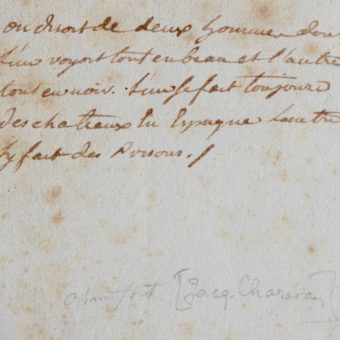 on disoit de deux hommes dont
l'un voyoit tout en beau et l'autre
tout en noir. L'un se fait toujours
des chateaux En Espagne Lautre
sy fait des Prisons./
Chamfort. [Jacq.